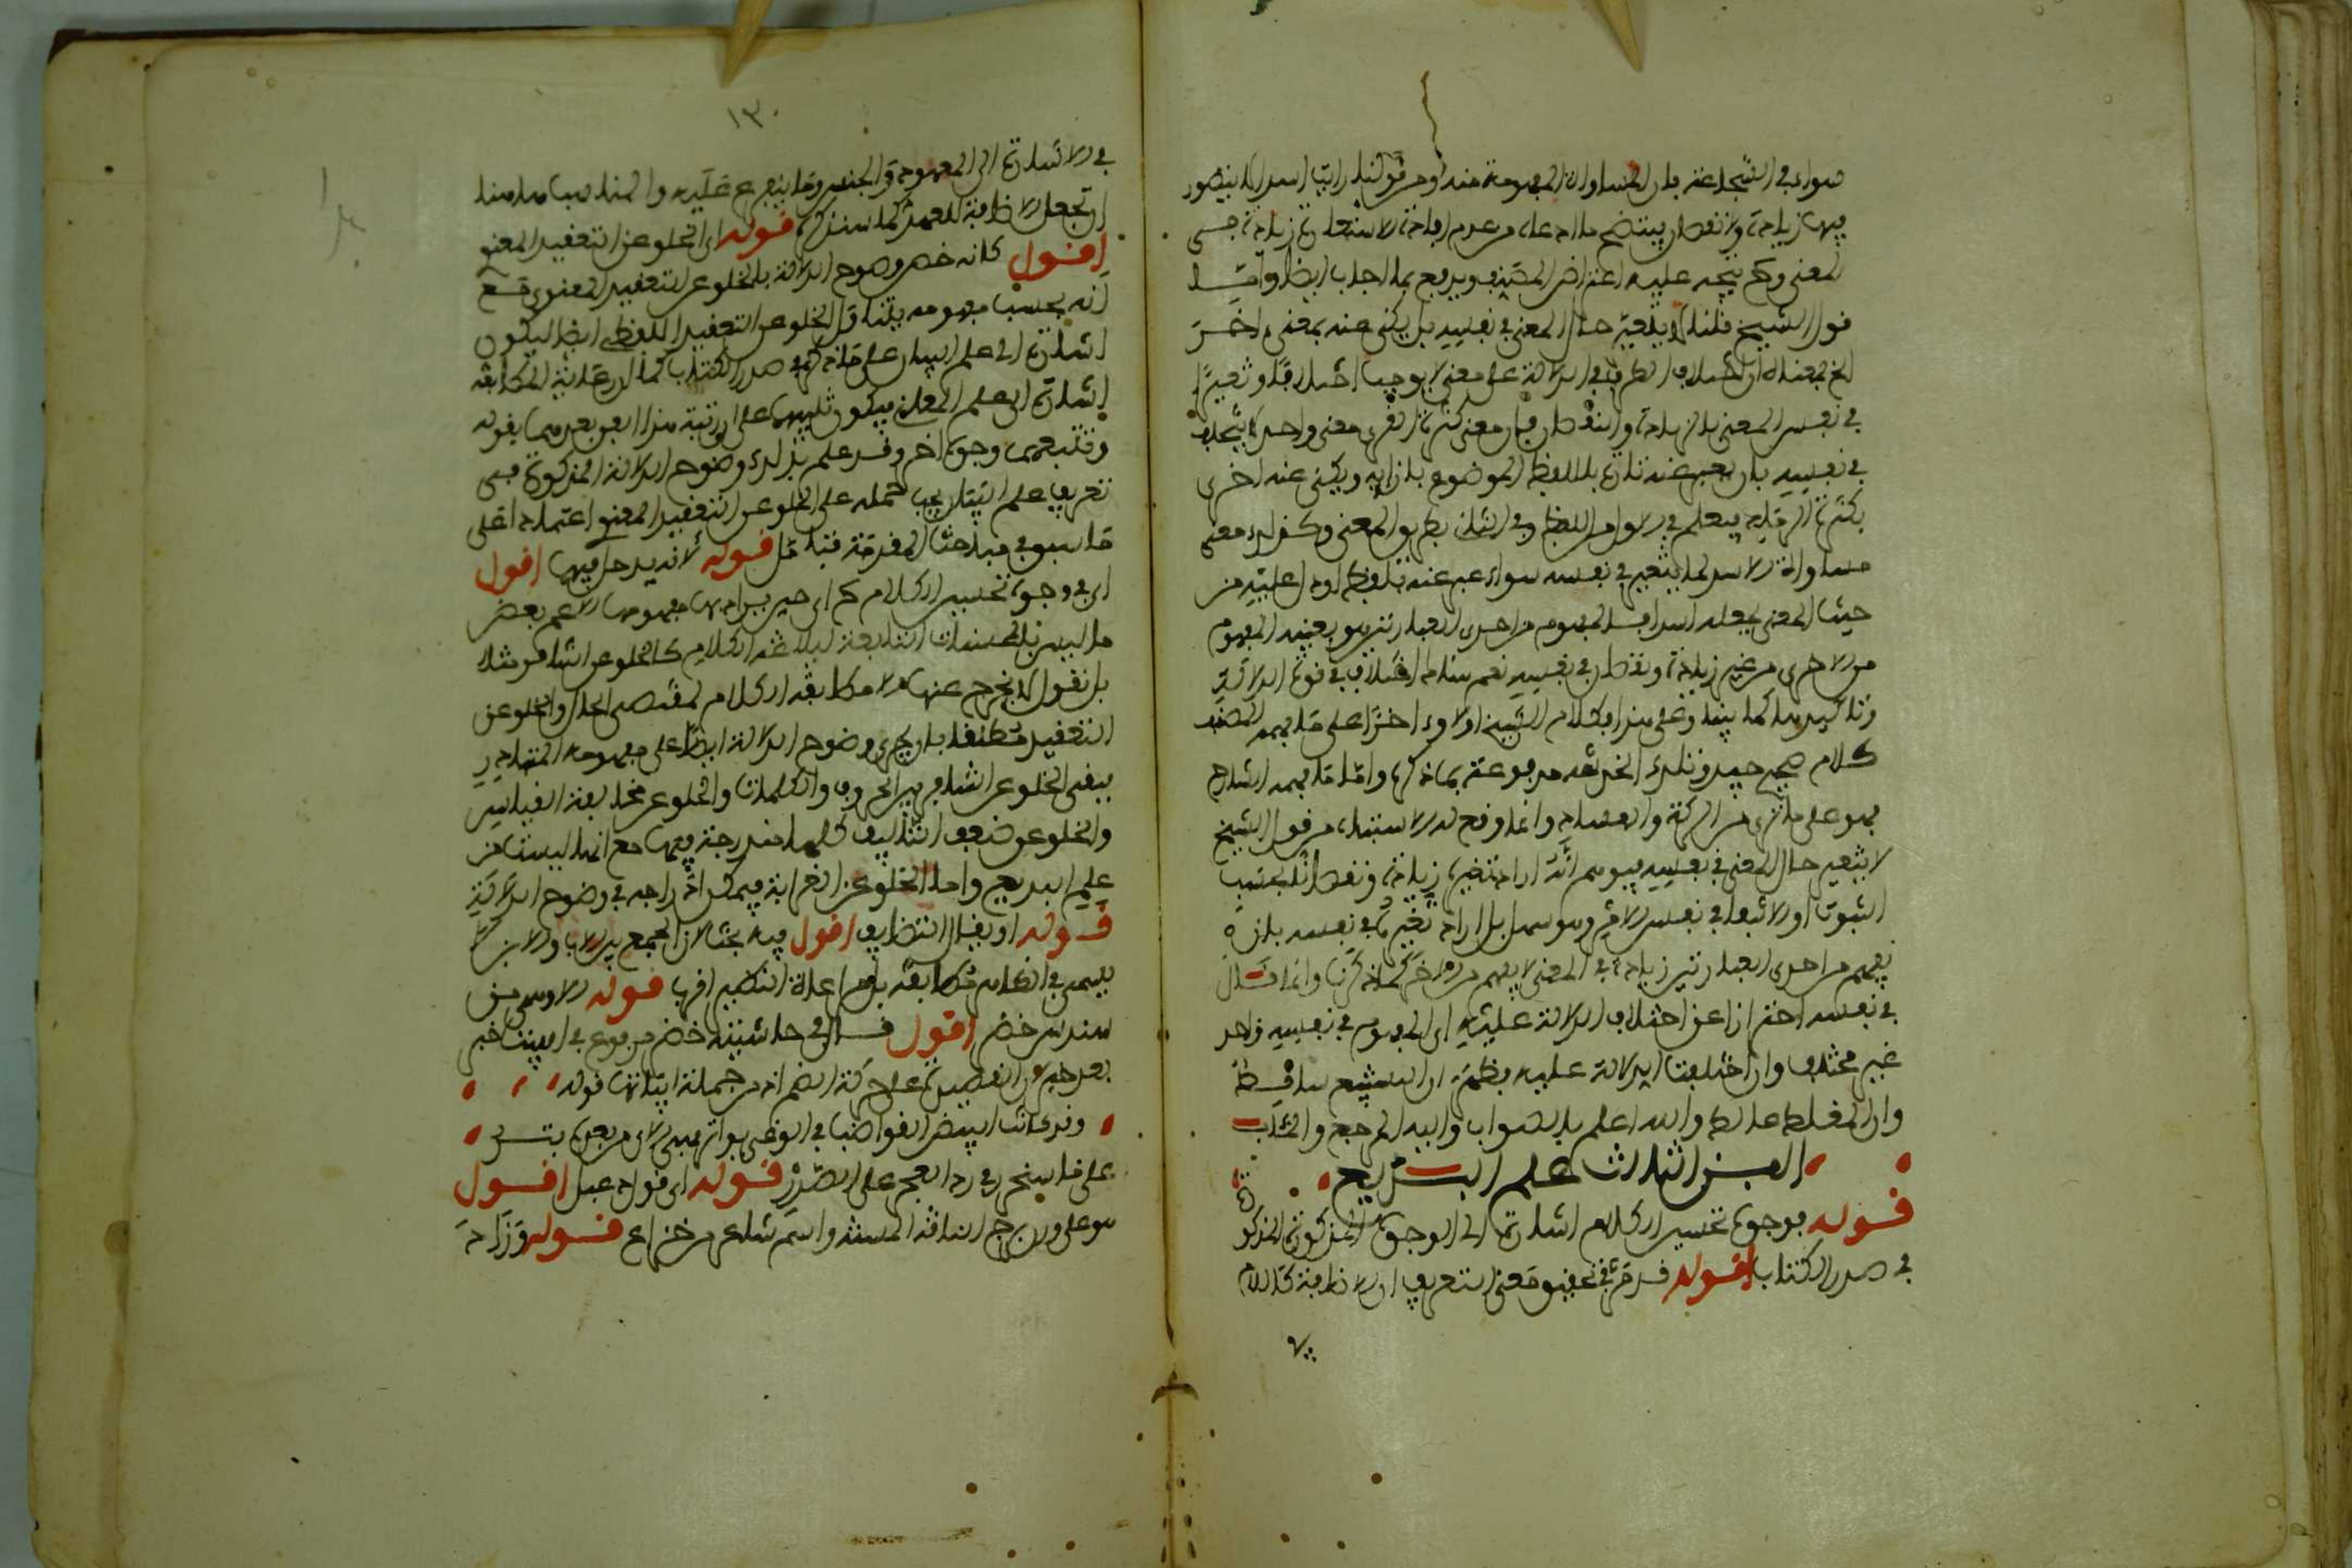 سواه في الشجاعة فان المساواة المفهومة منه ومن قولنا رايت اسدا لا يتصور
فيها زيادة ولا نقصان يتضح ما ادعاه من عدم افادة الاستعارة زيادة في
المعنى وح يتجه عليه اعتراض المصنف ويدفع بما اجاب ايضا واما
قول الشيخ قلنا لا يتغير حال المعنى في نفسه بل يكنى عنه بمعنى اخر
الخ فمعناه ان اختلاف الطرق في الدلالة على معنى لا يوجب اختلافا وتغيرا
في نفس المعنى بالزيادة والنقصان فان معنى كثرة القرى معنى واحد لا يختلف
في نفسه بان يعبر عنه تارة باللفظ الموضوع بازايه ويكنى عنه اخرى
بكثرة الرماد فيعلم في الاول من اللفظ وفي الثاني بطريق المعنى وكذلك معنى
مساواة الاسد لما يتغير في نفسه سواء عبر عنه بلفظه او دل عليه من
حيث المعنى بجعله اسدا فالمفهوم من احدى العبارتين هو بعينه المفهوم
من الاخرى من غير زيادة ونقصان في نفسه نعم هناك اختلاف في قوة الدلالة
وتاكيدها كما بينا وعلى هذا فكلام الشيخ اولا واخرا على ما فهمه المصنف
كلام صحيح جيد وتلك الخدشة مدفوعة بما ذكره واما ما فهمه الشارح
فهو على ما ترى من الركة والفساد وانما وقع له الاشتباه من قول الشيخ
لا يتغير حال المعنى في نفسه فتوهم انه اراد تغيره زيادة ونقصانا بحسب
الثبوت او الانتفاء في نفس الامر وهو سهل بل اراد تغيره في نفسه بان
يفهم من احدى العبارتين زيادة في المعنى لا يفهم من الاخر كما ذكرنا وانما قال
في نفسه احترازا عن اختلاف الدلالة عليه اي المفهوم في نفسه واحد
غير مختلف وان اختلفت الدلالة عليه فظهر ان التشنيع ساقط
وان المغلط غالط والله اعلم بالصواب واليه المرجع والمئاب
الفن الثالث علم البديع
قوله فوجوه تحسين الكلام اشارة الى الوجوه المذكورة المذكور
في صدر الكتاب اقول قد مر في تحقيق معنى التعريف ان الاضافة كاللام
١٣٠
في الاشارة الى المعهود والجنس وما يتفرع عليه والمناسب هاهنا
ان تجعل الاضافة للعهد كما سنذكره قوله اي الخلو عن التعقيد المعنوي
اقول كانه خص وضوح الدلالة بالخلو عن التعقيد المعنوي مع
انه بحسب مفهومه يتناول الخلو عن التعقيد اللفظي ايضا ليكون
اشارة الى علم البيان على ما ذكره في صدر الكتاب كما ان رعاية المطابقة
اشارة الى علم المعاني فيكون تنبيها على ان رتبة هذا الفن بعدهما بقوله
وتتبعها وجوه اخر وقد علم بذلك وضوح الدلالة المذكورة في
تعريف علم البيان يجب حمله على الخلو عن التعقيد المعنوي اعتمادا على
ما سبق في مباحث المقدمة فتامل قوله لانه يدخل فيها اقول
اي في وجوه تحسين الكلام ح اي حين يراد بها مفهومها الاعم بعض
ما ليس بالمحسنات التابعة لبلاغة الكلام كالخلو عن التنافر مثلا
بل نقول لا يخرج عنها الا مطابقة الكلام لمقتضى الحال والخلو عن
التعقيد مطلقا بان يجرى وضوح الدلالة ايضا على مفهومه المتبادر
فيبقى الخلو عن التنافر بين الحروف والكلمات والخلو عن مخالفة القياس
والخلو عن ضعف التاليف كلها مندرجة فيها مع انها ليست من
علم البديع واما الخلو عن الغرابة فيمكن ادراجه في وضوح الدلالة
قوله او يقال التضايف اقول فيه بحث لان الجمع بين الاب والابن
يسمى في الظاهر مطابقة بل مراعاة النظير اقرب قوله الاوهي من
سندس خضر اقول قال في حاشيته خضر مرفوع في البيت خبر
بعد خبر والقصيدة على حركة الضم اذ من جملة ابياتها قوله
وقد كانت البيض القواضب في الوغى بواتر فهي الان من بعده بتر
على ما سيجيء في رد العجز على الصدر قوله اي قول دعبل اقول
هو على وزن زبرج الناقة المسنة واسم شاعر من خزاعة قوله وزاد